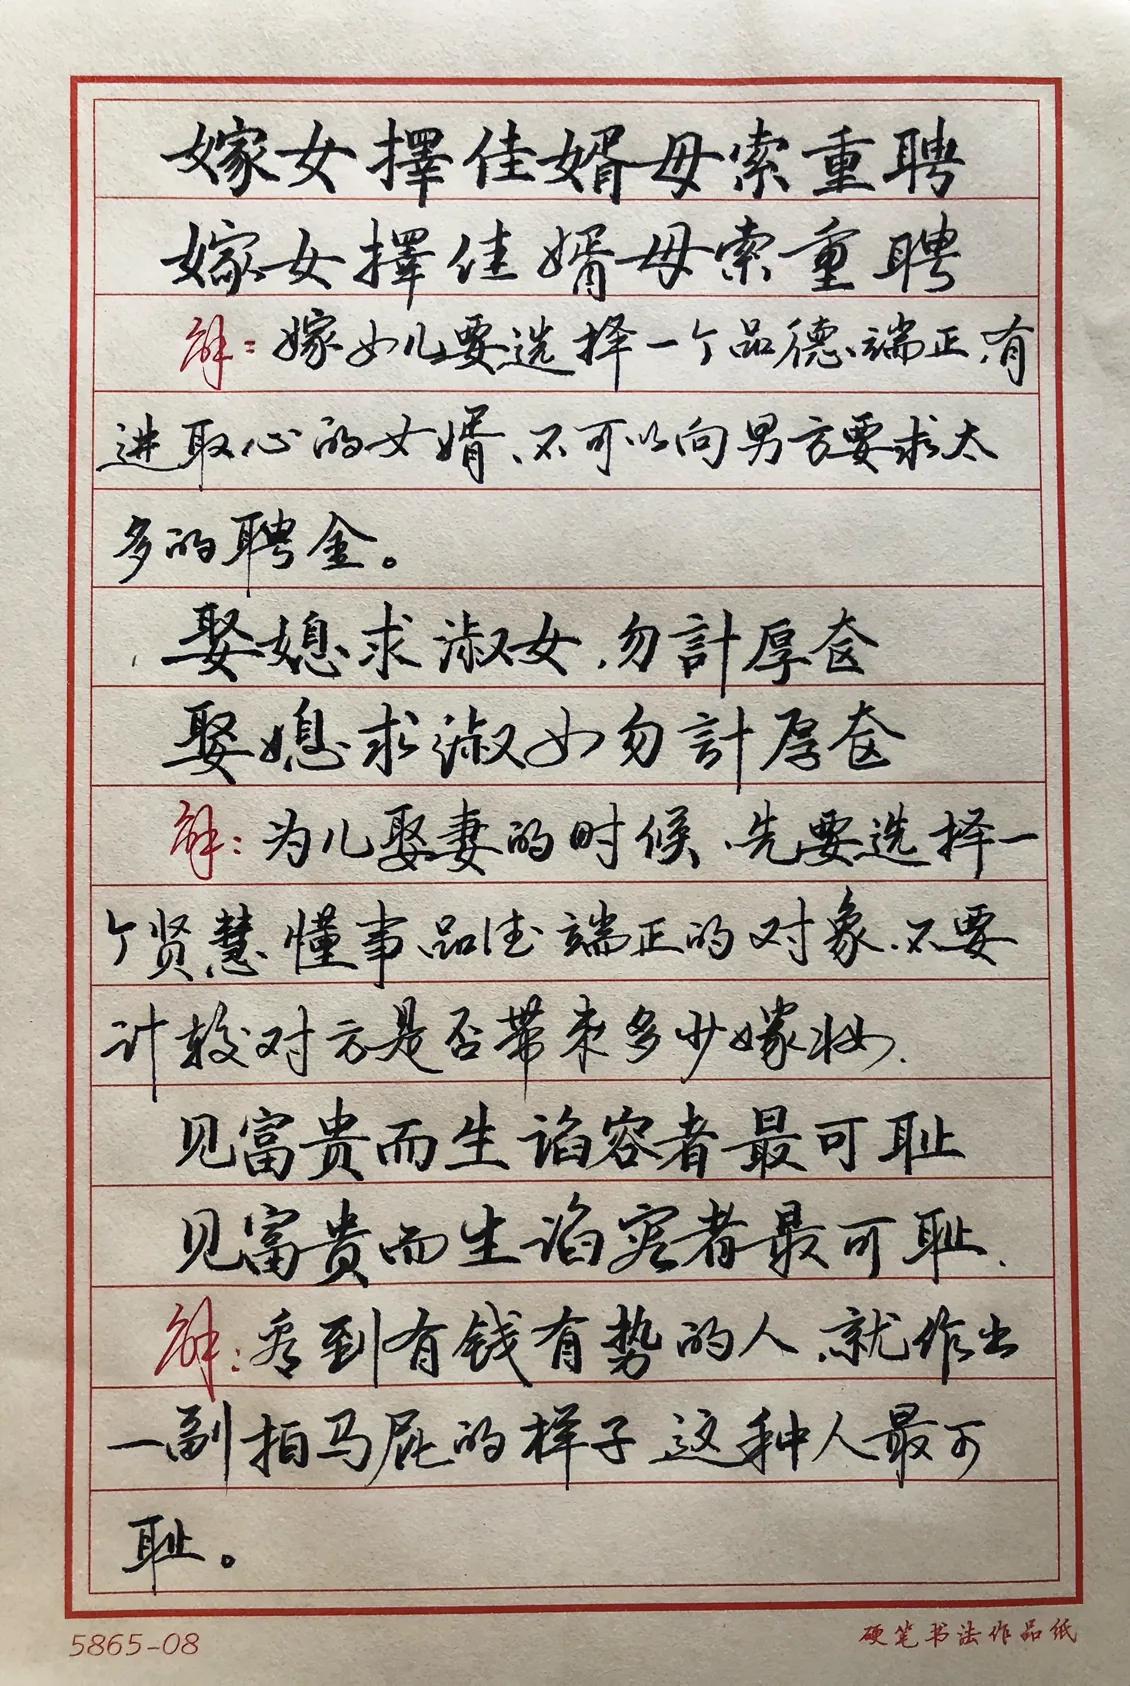 嫁女擇佳婿母索重聘
嫁女擇佳婿母索重聘
解：嫁女儿要选择一个品德端正、有
进取心的女婿、不可以向男方要求太
多的聘金。
娶媳求淑女、勿計厚奁
娶媳求淑女勿計厚奁
解：为儿娶妻的时候、先要选择一
个贤慧懂事品德端正的对象、不要
计较对方是否带来多少嫁妆、
见富贵而生谄容者最可耻
见富贵而生谄容者最可耻、
解：看到有钱有势的人、就作出
一副拍马屁的样子这种人最可
耻。
5865-08
硬笔书法作品纸